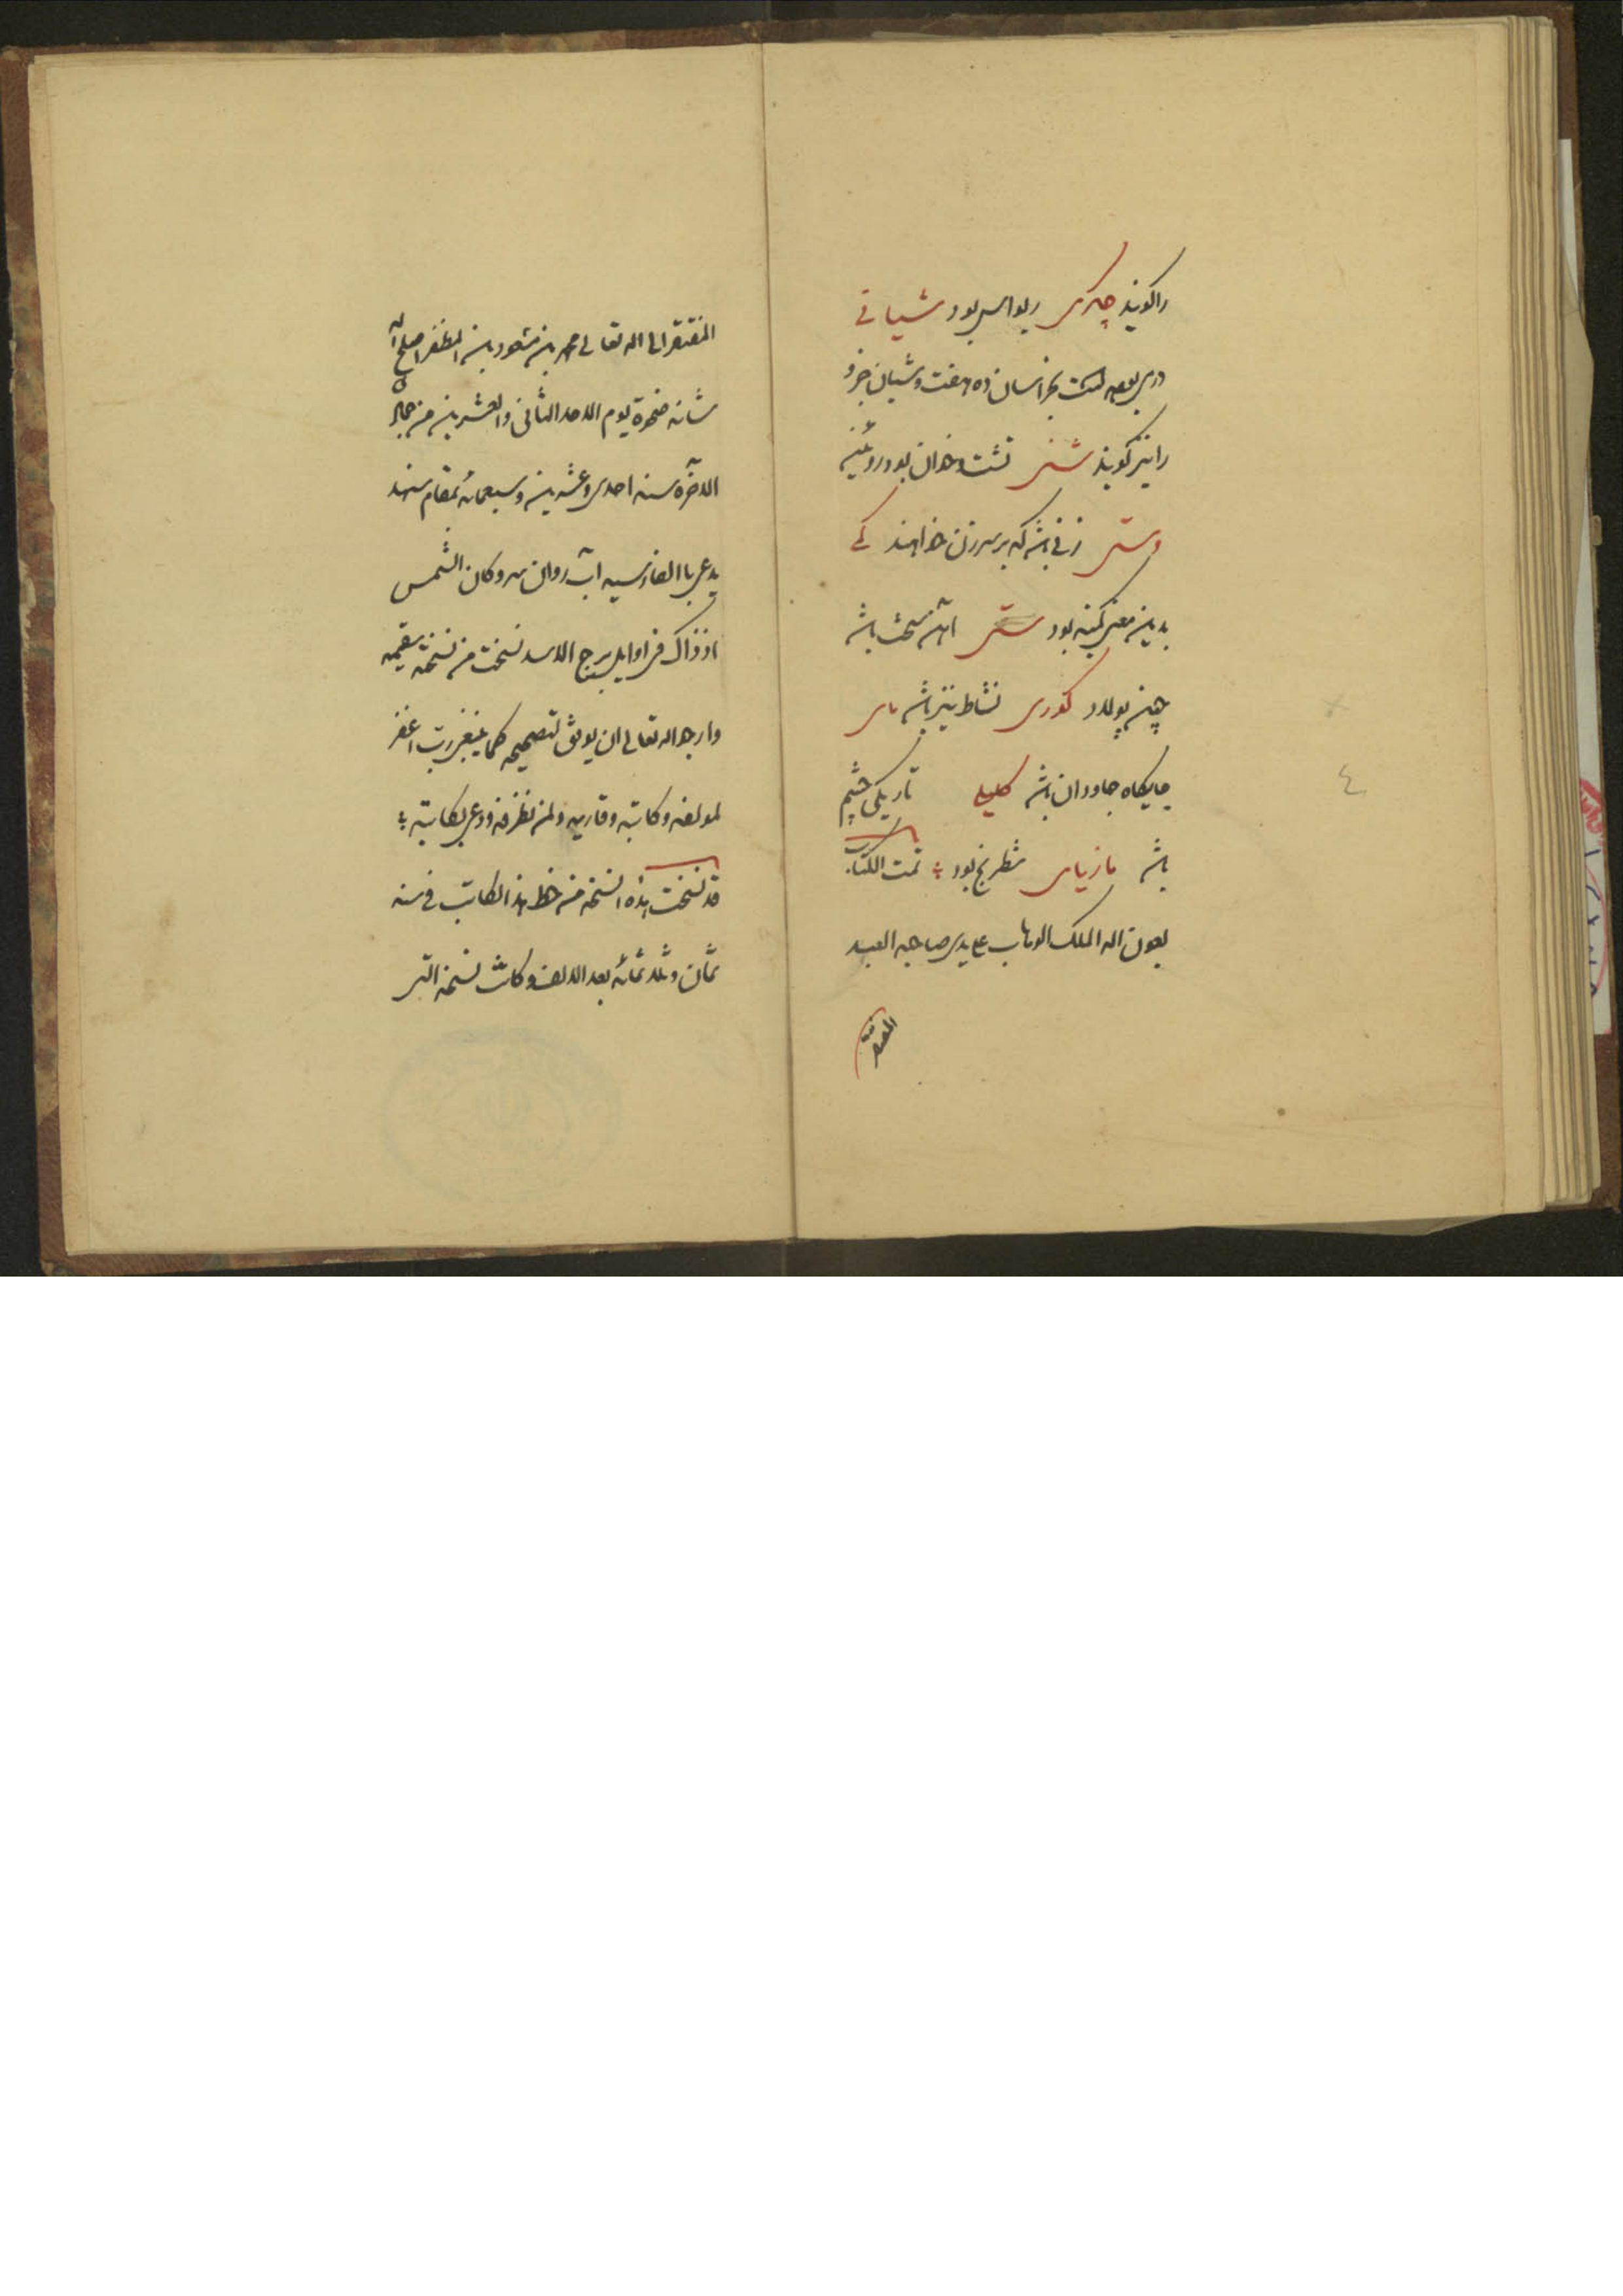 را گویند چکری ریواس بود شیانی
درمی بوده است بخراسان ده هفت و شیان خرد
را نیز گویند شنی تشت و خوان بود روئینه
وسنی زنی باشد که بر سر زن خواهند کی
بدین معنی کینه بود ستی آهن سخت باشد
چون پولاد کوری نشاط نیز باشد
جایکاه جاودان باشد کلیلی تاریکی چشم
باشد شطرنج بود تمت الکتاب
بعون اله الملک الوهاب علی یدی صاحبه العبد
المفتقر
المفتقر الی اله تعالی محمد بن مسعود بن المظفر اصلح اله
شانه ضحوة یوم الاحد الثانی والعشرین من جمادی
الاخره سنه احدی وعشرین وسبعمائه بمقام
یدعی بالفارسیه آب روان وکان الشمس
اذ ذاک فی اوایل برج الاسد نسخت من نسخة سقیمه
وارجو اله تعالی ان یوفق لتصحیحه کما ینبغی رب اغفر
لمولفه وکاتبه وقاریه ولمن نظر فیه ودعی لکاتبه
قد نسخت هذه النسخه من خط هذا الکاتب فی سنه
ثمان وثلاثمائه بعد الالف وکانت نسخه التی